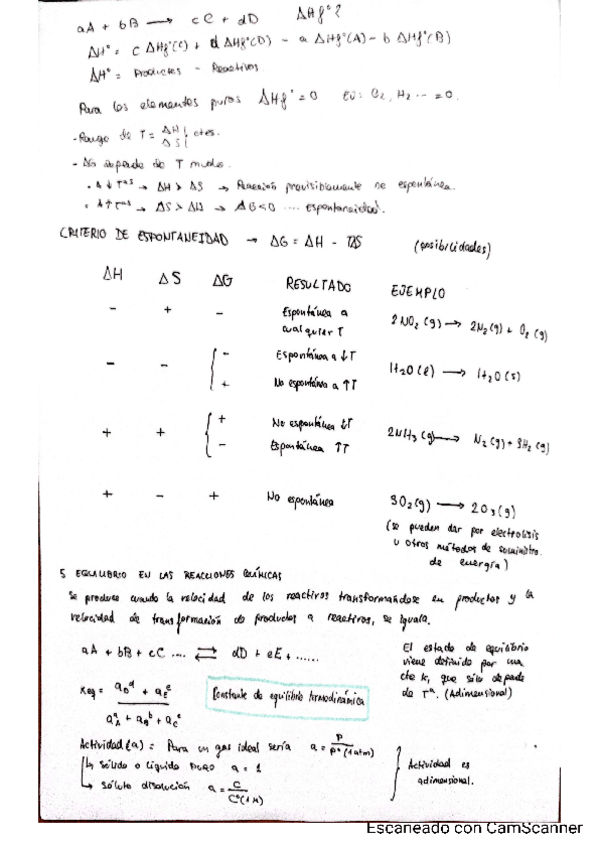 aA + bB → cC + dD ΔHf°?
ΔH° = c ΔHf°(C) + d ΔHf°(D) - a ΔHf°(A) - b ΔHf°(B)
ΔH° = Productos - Reactivos
Para los elementos puros ΔHf° = 0 EJ: O₂, H₂ ... = 0.
- Rango de T = ΔH/ΔS ctes.
- ΔG depende de T mucho.
• A ↓ Tªs → ΔH > ΔS → Reacción previsiblemente no espontánea.
• A ↑ Tªs → ΔS > ΔH → ΔG < 0 .... espontaneidad.
CRITERIO DE ESPONTANEIDAD → ΔG = ΔH - TΔS (posibilidades)
ΔH ΔS ΔG RESULTADO EJEMPLO
- + - Espontánea a cualquier T 2NO₂(g) → 2N₂(g) + O₂(g)
- - { - Espontánea a ↓T H₂O(l) → H₂O(s)
+ No espontánea a ↑T
+ + { + No espontánea ↓T 2NH₃(g) → N₂(g) + 3H₂(g)
- Espontánea ↑T
+ - + No espontánea 3O₂(g) → 2O₃(g)
(se pueden dar por electrolisis
u otros métodos de suministro
de energía)
5 EQUILIBRIO EN LAS REACCIONES QUÍMICAS
Se produce cuando la velocidad de los reactivos transformándose en productos y la
velocidad de transformación de productos a reactivos, se iguala.
aA + bB + cC .... ⇄ dD + eE + ......
Keq = (a_D^d + a_E^e) / (a_A^a + a_B^b + a_C^c)
Constante de equilibrio termodinámica
El estado de equilibrio
viene definido por una
cte k, que sólo depende
de Tª. (Adimensional)
Actividad (a) = Para un gas ideal sería a = P / P°(1atm)
↳ Sólido o líquido puro a = 1
↳ Soluto disolución a = C / C°(1M)
Actividad es
adimensional.
Escaneado con CamScanner